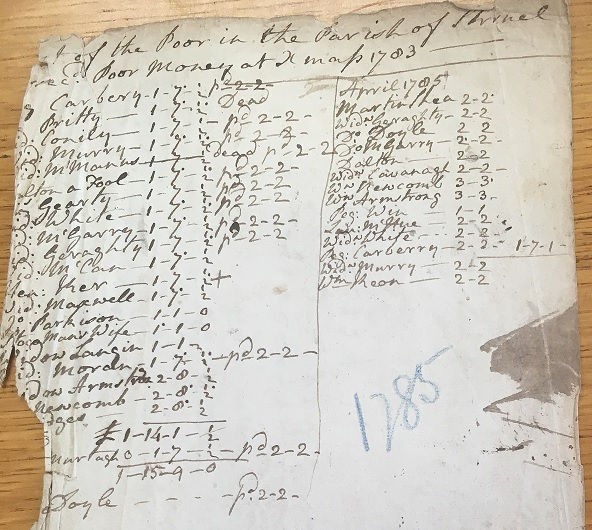 of the Poor in the Parish of Shruel
Poor Money at Xmass 1783
Carbery - 1-7-½ pd 2-2-
Pritty - 1-7-½ Dead
Conily - 1-7-½ - pd 2-2-
Murry - 1-7-½ - pd 2-2-
McManus - 1-7-½ dead pd 2-2-
a Fool - 1-7-½ pd 2-2-
Gearty - 1-7-½ pd 2-2-
White - 1-7-½
McGarry - 1-7-½ pd 2-2-
Geraghty - 1-7-½ pd 2-2-
McCan - 1-7-½
Ker - 1-7-½ +
Maxwell - 1-7-½
Parkison - 1-1-0
Mans Wife - 1-1-0
1-1-½
Moran - 1-7-½ - pd 2-2-
Armstrg 2-8-½
Newcomb - 2-8-½
2-8-½
£1-14-1-½
Murtagh 0-1-7-½ - pd 2-2-
1-15-9-0
Doyle - - - pd 2-2-
Aprril 1785
Martin Shea 2-2
Widw Geraghty - 2-2
Do Doyle 2 2
Do McGarry - 2-2-
Dalton 2-2
Widw Cavanagh 2-2
Wm Newcomb 3-3
Wm Armstrong 3-3
Peg: Win 1-1-
2-2-
Widw White 2-2-
Peg: Carberry - 2-2- 1-7-1-
Widw Murry 2-2
Wm 2-2
1785